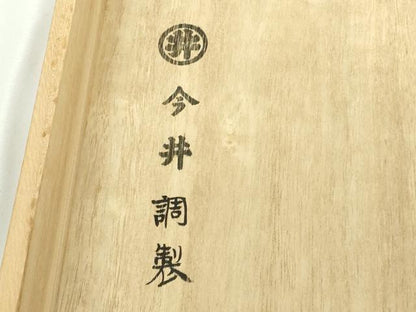 井
今井調製